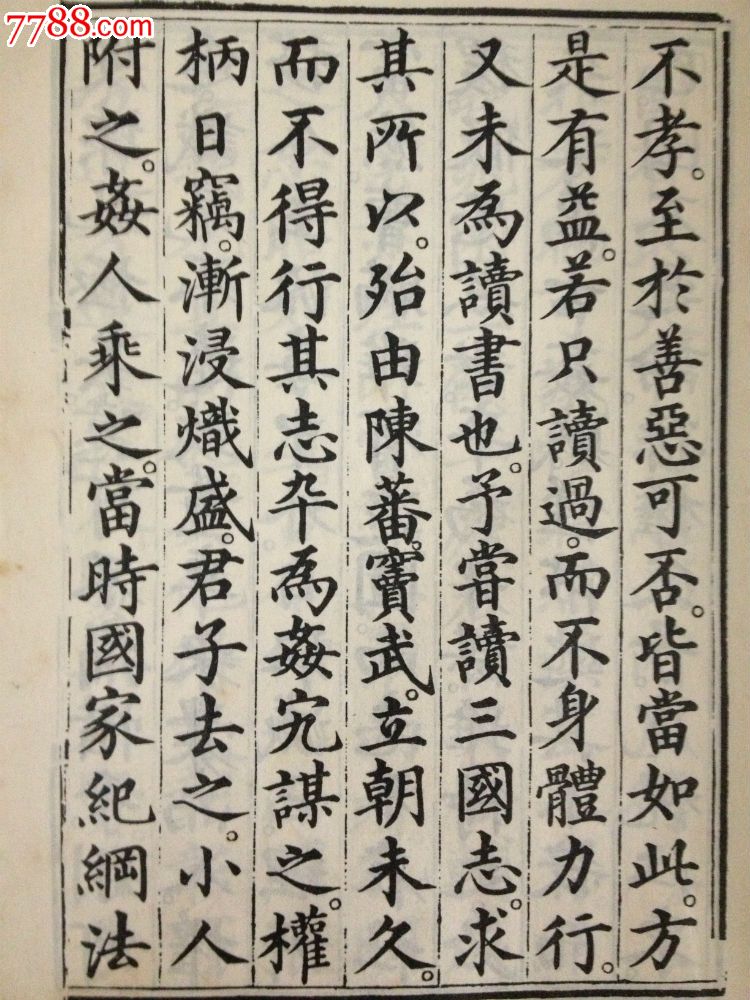 7788.com
不孝。至於善惡可否。皆當如此。方
是有益。若只讀過。而不身體力行。
又未為讀書也。予嘗讀三國志。求
其所以。殆由陳蕃。竇武。立朝未久。
而不得行其志。卒為姦宄謀之。權
柄日竊。漸浸熾盛。君子去之。小人
附之。姦人乘之。當時國家紀綱法